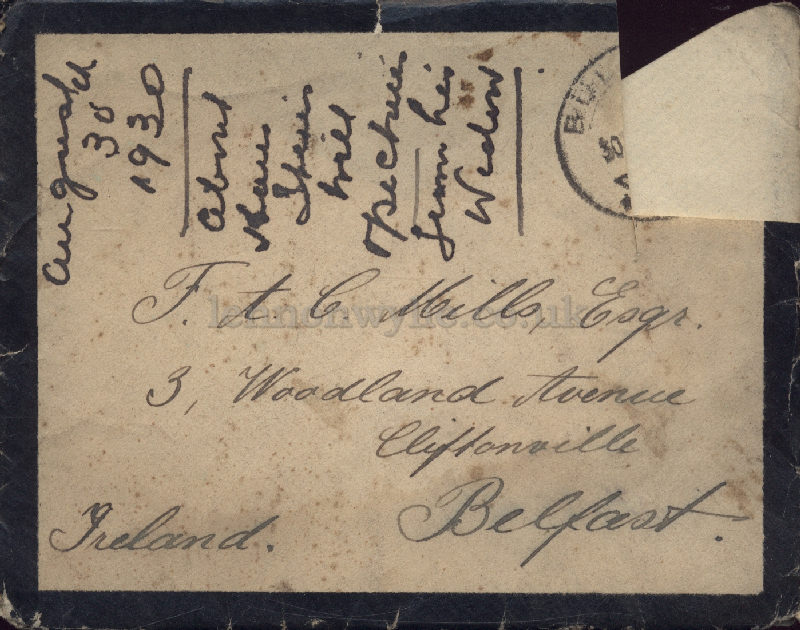 August
30
1930
About
Shares
his
will
&
pictures
from his
Widow
BU
F. A. C. Mills, Esqr.
lennonwylie.co.uk
3, Woodland Avenue
Cliftonville
Belfast.
Ireland.